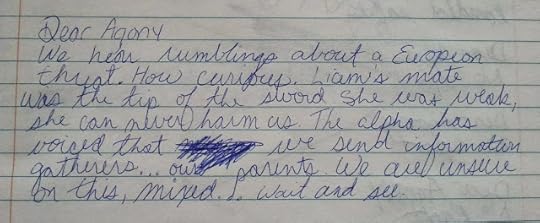 Dear Agony
We hear rumblings about a Europeon
thryat. How curious. Liam's mate
was the tip of the sword She was weak,
she can never harm us. The alpha has
voiced that we send information
gatherers... our parents. We are unsure
on this, mixed. I wait and see.